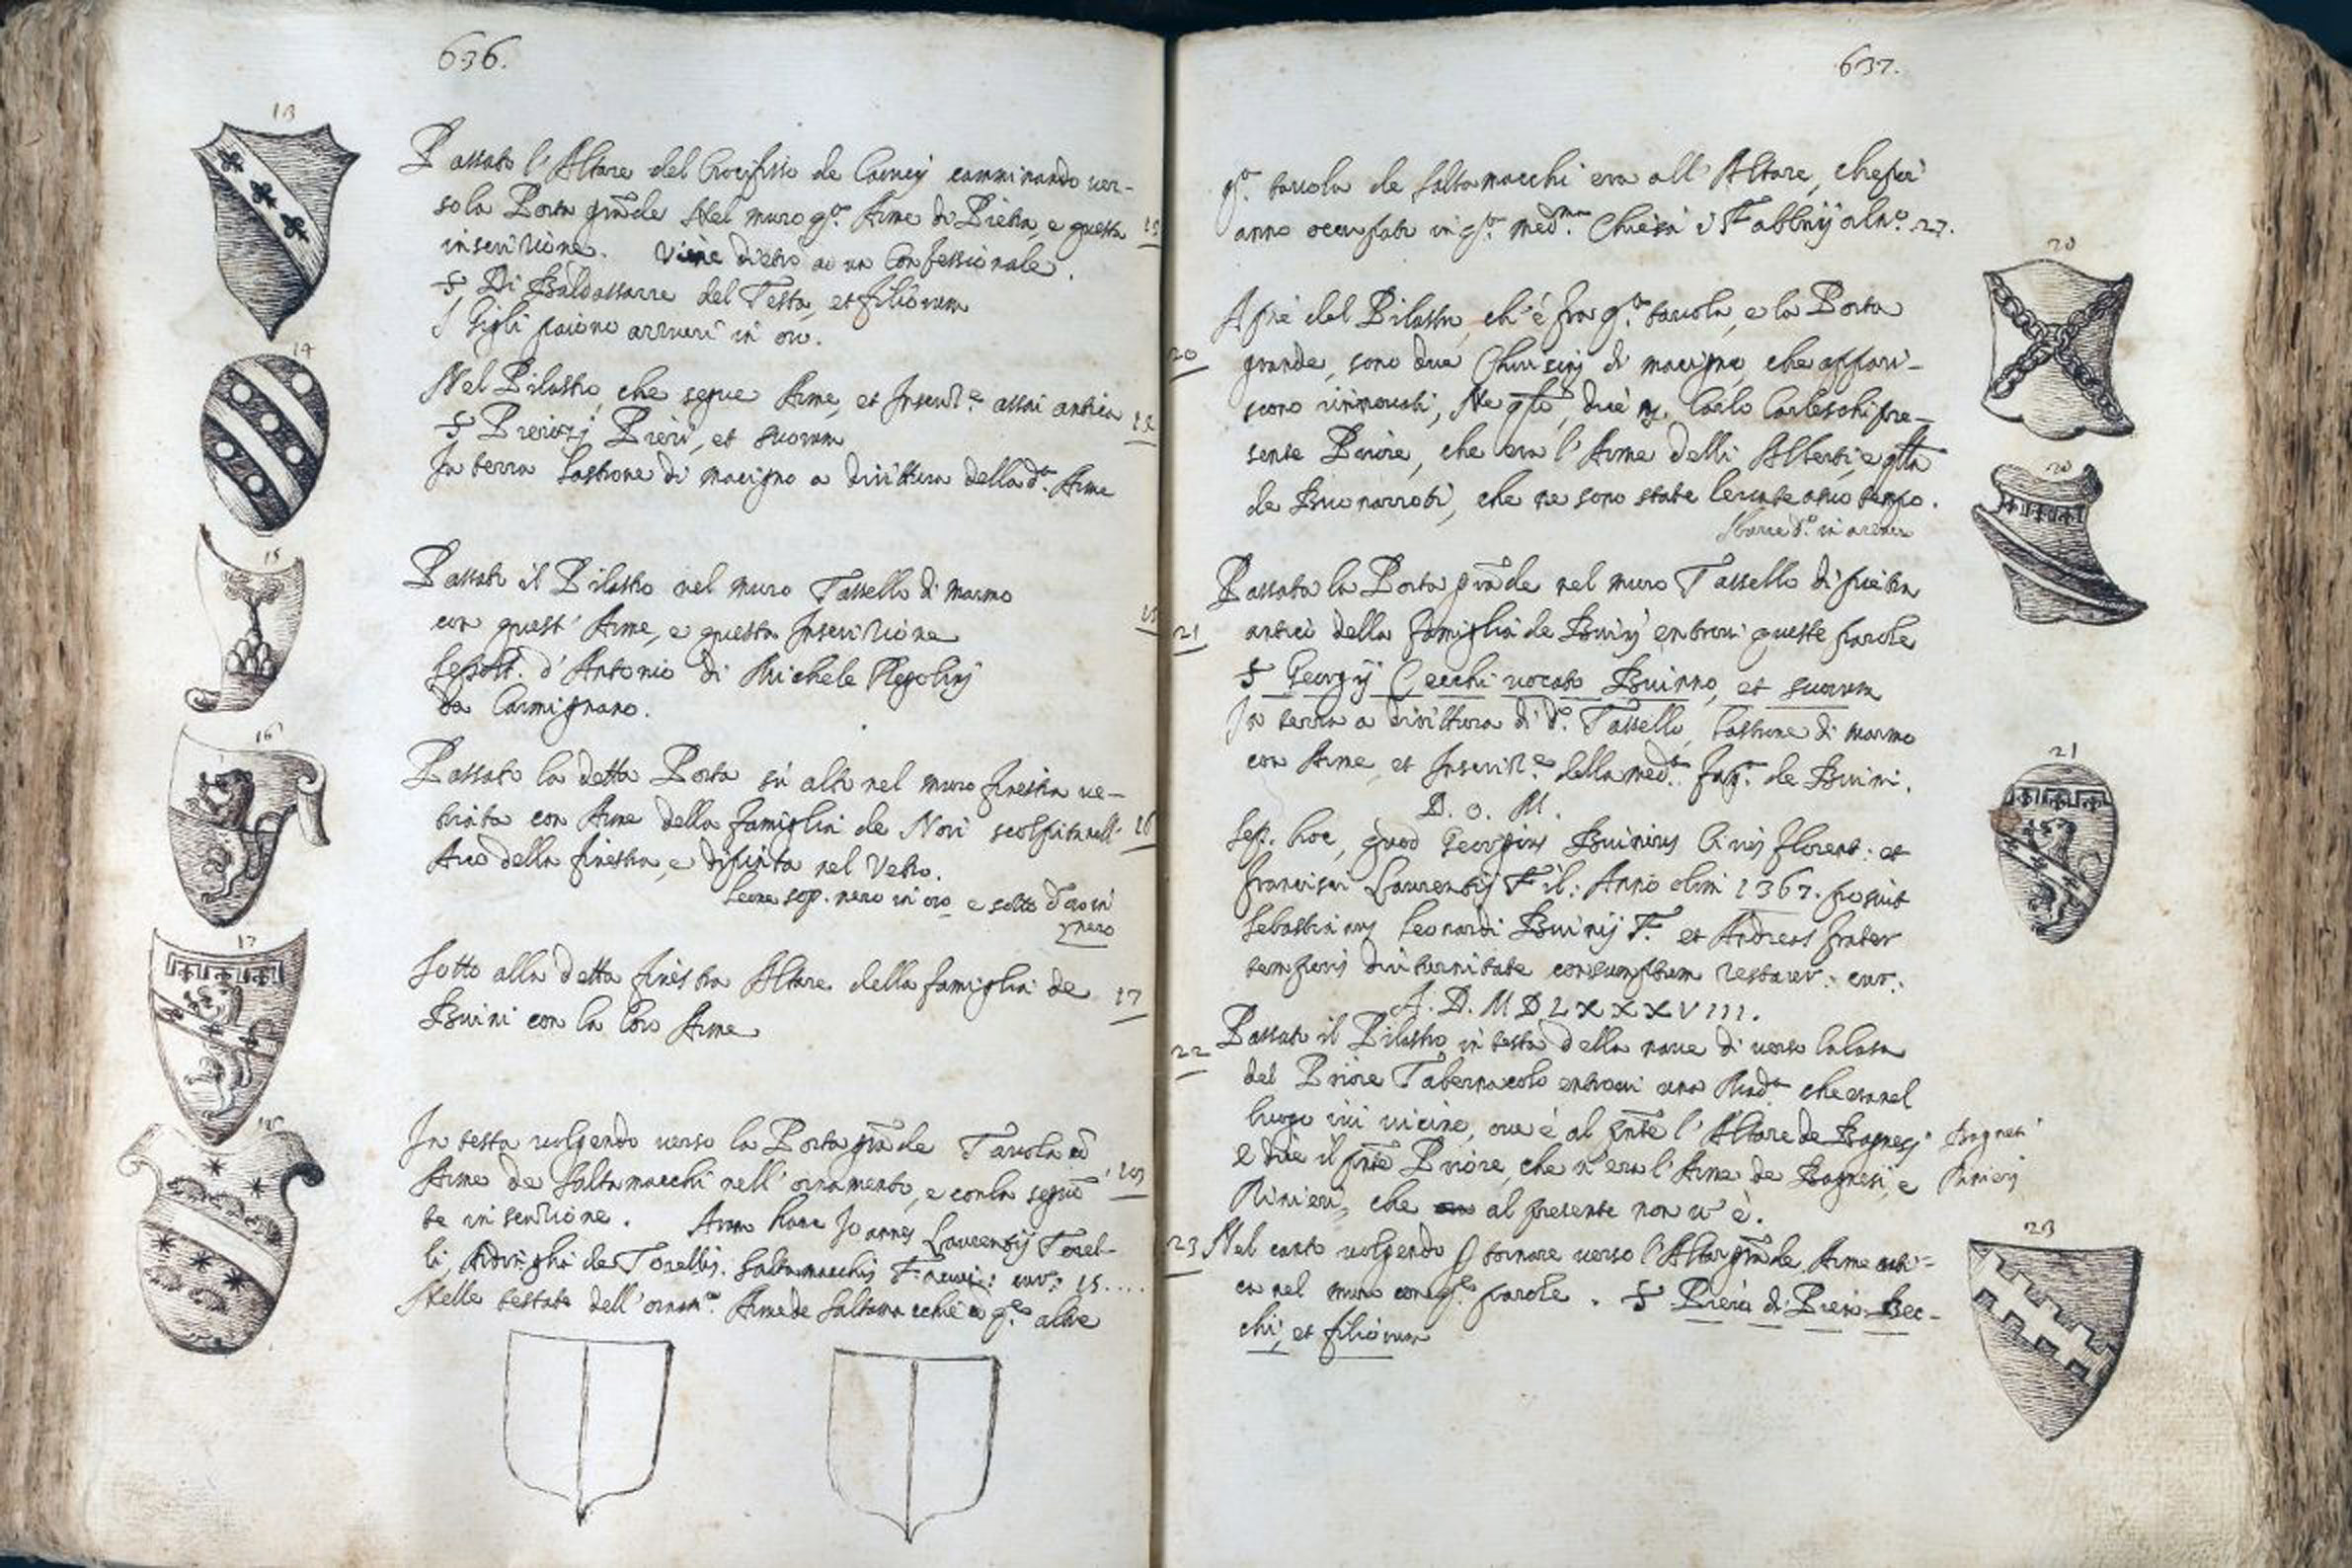 636.
13
Passato l'Altare del Crocifisso de camminando ver-
so la Porta grãde Nel muro q.ª Arme di Pietra, e questa 13
inscrizione. Viene dietro ad un Confessionale.
S Di Baldassarre del Testa, et filiorum
I Gigli paiono azzurri in oro.
14
Nel Pilastro, che segue Arme, et Inscriz.e assai antica
S Pierozzi Pieri, et suorum
In terra lastrone di macigno a dirittura della d.ª Arme
15
Passato il Pilastro nel muro Tassello di marmo
con quest'Arme, e questa Inscrizione 15
Sepolt. d'Antonio di Michele
da Carmignano.
16
Passato la detta Porta sù alto nel muro finestra ve-
triata con Arme della famiglia de Nori scolpita nell' 16
Arco della finestra, e dipinta nel Vetro.
Leone sop. nero in oro e sotto d'oro in
nero
17
Sotto alla detta finestra Altare della famiglia de 17
Buini con la loro Arme
In testa volgendo verso la Porta grãde Tavola cõ
Arme de Saltamacchi nell'ornamento, e con la seguẽ
te inscrizione. Aram hanc Joannes Laurentij Torel-
li, de Torellis. Saltamacchis F. 15....
Nelle testate dell'ornam.º Arme de e q.e altre
637.
q.ª tavola de Saltamacchi era all'Altare, che
anno occupato in q.ª med.ma Chiesa i Fabbrij al n.º 27.
20
A piè del Pilastro, ch'è fra q.ª tavola, e la Porta
20 grande, sono due Chiusini di macigno, che appari-
scono rinnovati, Ne q̃li, dice Carlo pre-
sente Priore, che era l'Arme delli Alberti, e q̃lla
de Buonarroti, che ne sono state levate a suo tempo.
20
Passata la Porta grãde nel muro Tassello di pietra
21 antico della famiglia de Buini entrovi queste parole
S Georgij Cecchi vocato Buinno, et suorum
In terra a dirittura di d.º Tassello, lastrone di marmo
con Arme, et Inscriz.e della med.ª fam.ª de Buini.
21
D. O. M.
Sep. hoc, quod Georgius Buinius Civis Florent: et
Francisci Laurentij Fil: Anno olim 1367. posuit
Sebastianus Leonardi Buinij F. et Andreas frater
temporis diuturnitate consumptum restaur: cur:
A. D. MDLXXXVIII.
22 Passato il Pilastro in testa della nave di verso la Casa
del Priore Tabernacolo entrovi una Mad.ª che era nel
luogo ivi vicino, ove è al p̃nte l'Altare de Bagnesi Bagnesi
e dice il p̃nte Priore, che v'era l'Arme de Bagnesi, e
Rinieri, che al presente non v'è.
23 Nel canto volgendo p tornare verso l'Altar grãde Arme anti-
ca nel muro con q.e parole. S Pieri di Piero Bec-
chi, et filiorum
23